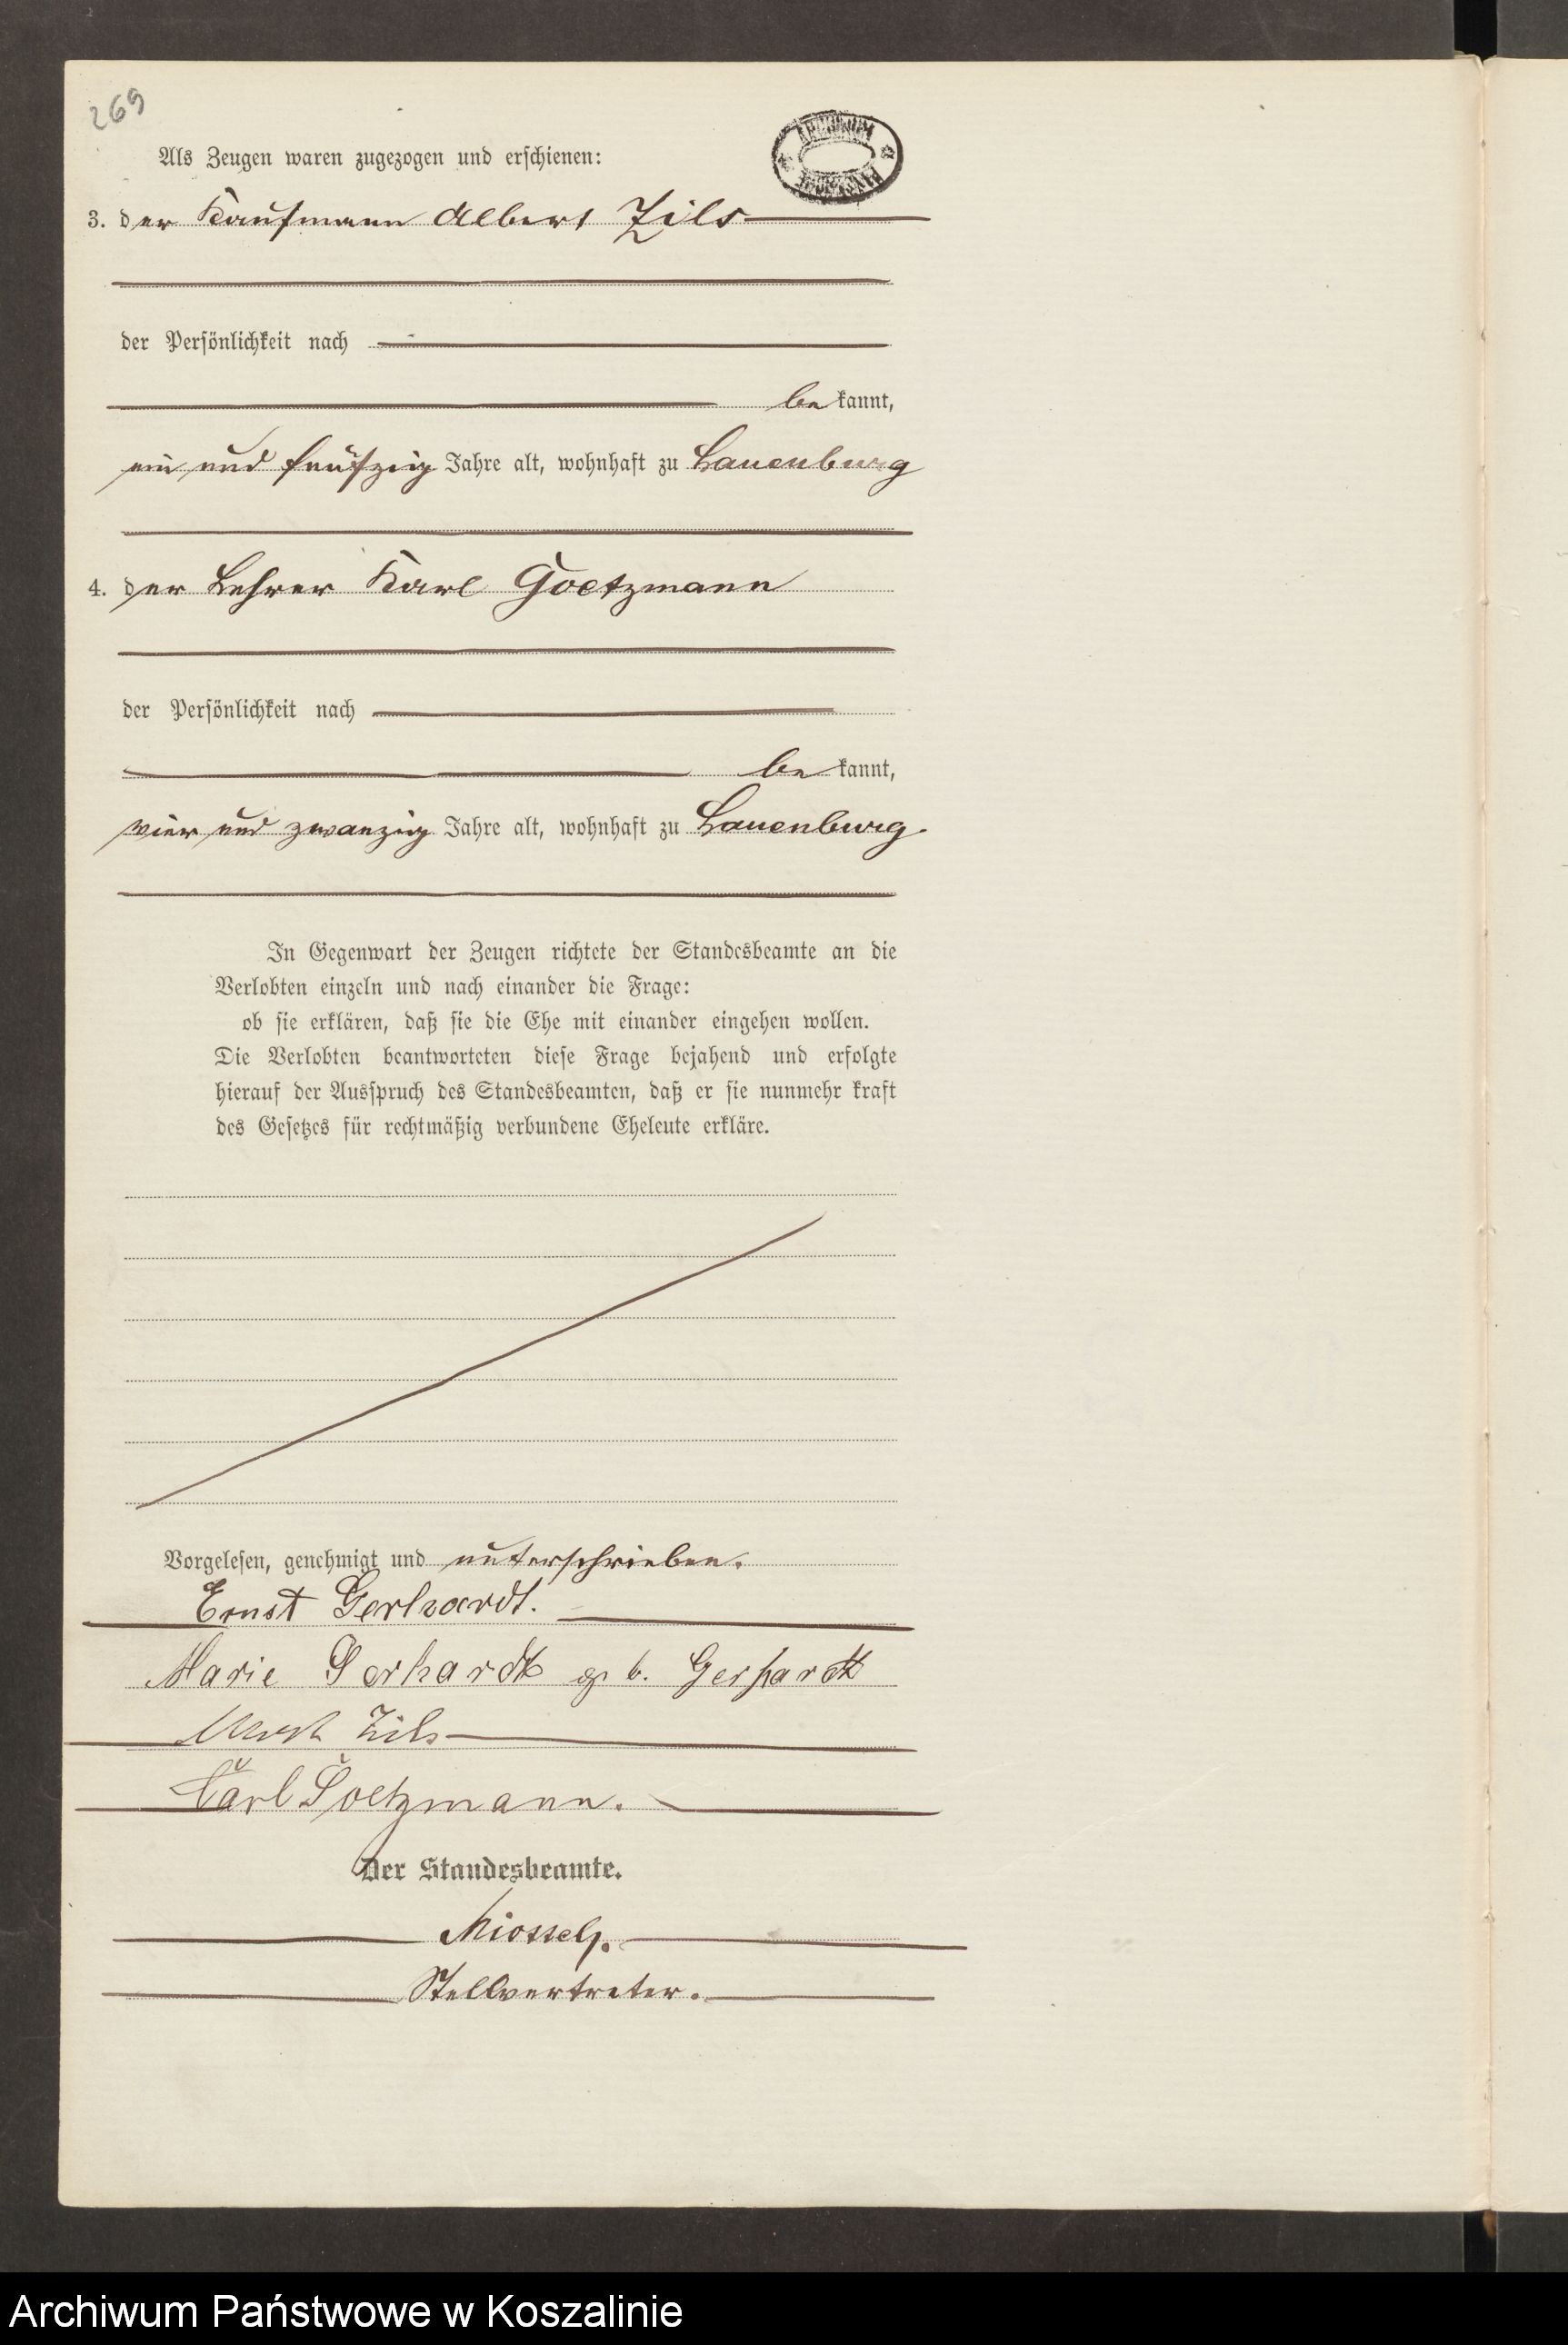 269
ARCHIWUM
Als Zeugen waren zugezogen und erschienen:
3. der Kaufmann Albert Zils
der Persönlichkeit nach
bekannt,
ein und fünfzig Jahre alt, wohnhaft zu Lauenburg
4. der Lehrer Karl Goetzmann
der Persönlichkeit nach
bekannt,
vier und zwanzig Jahre alt, wohnhaft zu Lauenburg.
In Gegenwart der Zeugen richtete der Standesbeamte an die
Verlobten einzeln und nach einander die Frage:
ob sie erklären, daß sie die Ehe mit einander eingehen wollen.
Die Verlobten beantworteten diese Frage bejahend und erfolgte
hierauf der Ausspruch des Standesbeamten, daß er sie nunmehr kraft
des Gesetzes für rechtmäßig verbundene Eheleute erkläre.
Vorgelesen, genehmigt und unterschrieben.
Ernst Gerhardt.
Marie Gerhardt geb. Gerhardt
Albert Zils
Carl Goetzmann.
Der Standesbeamte.
Stellvertreter.
Archiwum Państwowe w Koszalinie